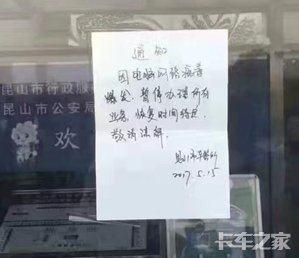 通知
因电脑网络病毒
爆发,暂停办理所有
业务,恢复时间待定
敬请谅解。
2017.5.15
昆山市行政服
昆山市公安局
欢
卡车之家